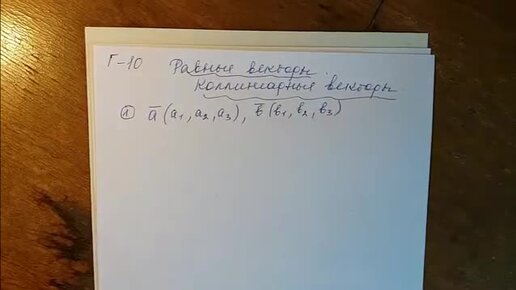 Г-10 Равные векторы.
Коллиниарные векторы
① a̅ (a₁, a₂, a₃), b̅ (b₁, b₂, b₃)